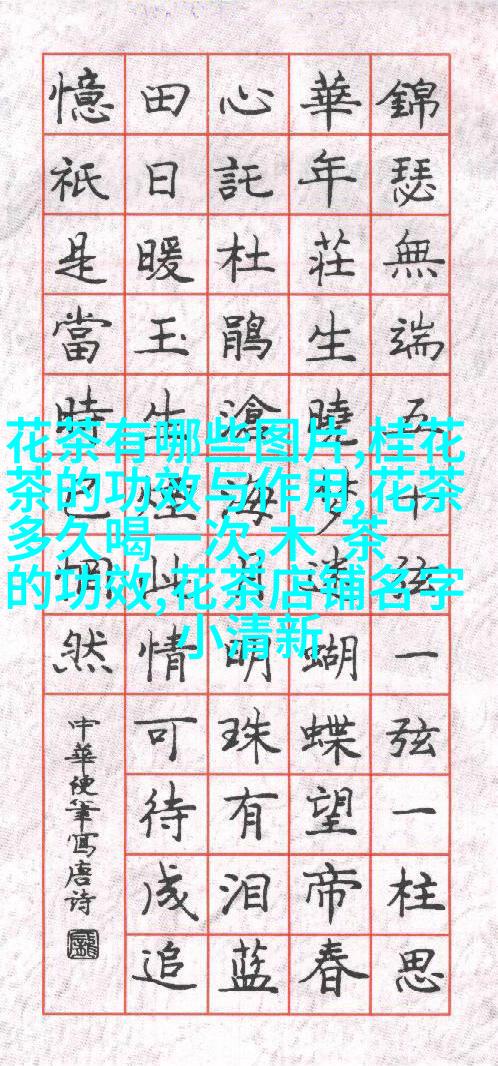 花茶有哪些图片,桂花
茶的功效与作用,花茶
多久喝一次,木 茶
的功效,花茶店铺名字
小清新
錦瑟無端五十弦一弦一柱思
華年莊生曉夢迷蝴蝶望帝春
心託杜鵑滄海月明珠有泪蓝
田日暖玉生煙此情可待成追
憶祇是當時已惘然
中華便筆寫唐诗